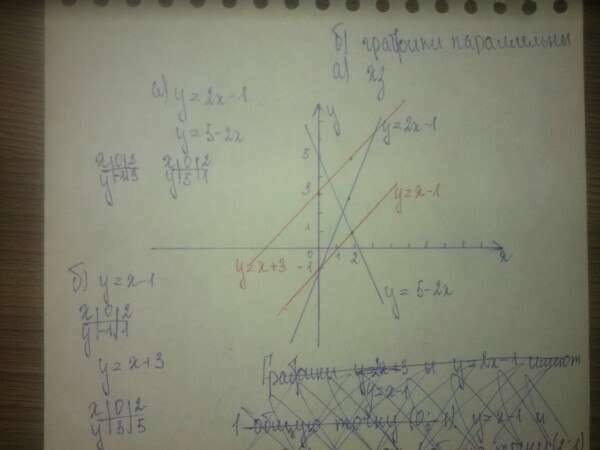 б) графики параллельны
а) хз
а) y = 2x-1
y = 5-2x
x | 0 | 2
y | -1 | 3
x | 0 | 2
y | 5 | 1
y
5
3
1
0
1
2
x
-1
y=2x-1
y=x-1
y=x+3
y = 5-2x
б) y = x-1
x | 0 | 2
y | -1 | 1
y = x+3
x | 0 | 2
y | 3 | 5
Графики y=x+3 и y=2x-1 имеют
y=x-1
1 общую точку (0;-1) y=x-1 и